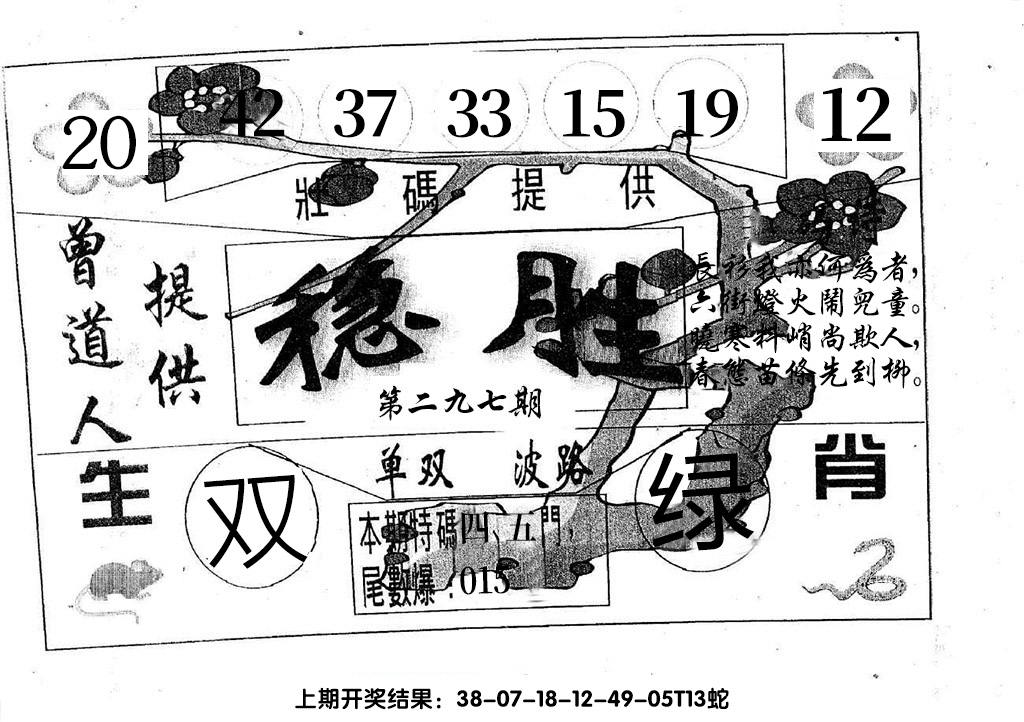 20 42 37 33 15 19 12
壯碼提供
特
曾道人
提供
稳胜
第二九七期
長衫我亦何為者,
六街燈火鬧兒童。
曉寒料峭尚欺人,
春態苗條先到柳。
单双 波路
生肖
双
绿
本期特碼四、五門,
尾數爆:015
上期开奖结果:38-07-18-12-49-05T13蛇